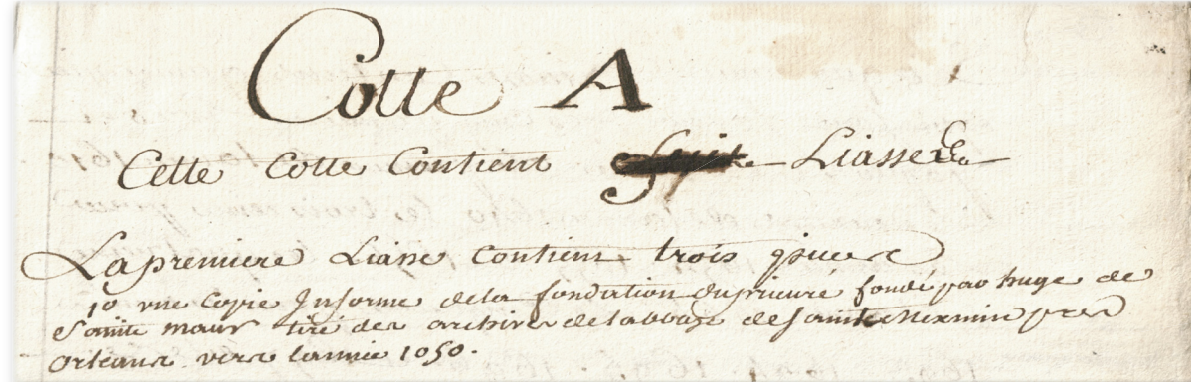 Cotte A
Cette Cotte Contient Liasse
La premiere Liasse Contient trois pieces
1º une Copie Informe de la fondation du prieuré fondé par huge de
Sainte maur tiré des archives de labbaye de saint Mexmin pres
Orleans vers lannée 1050.